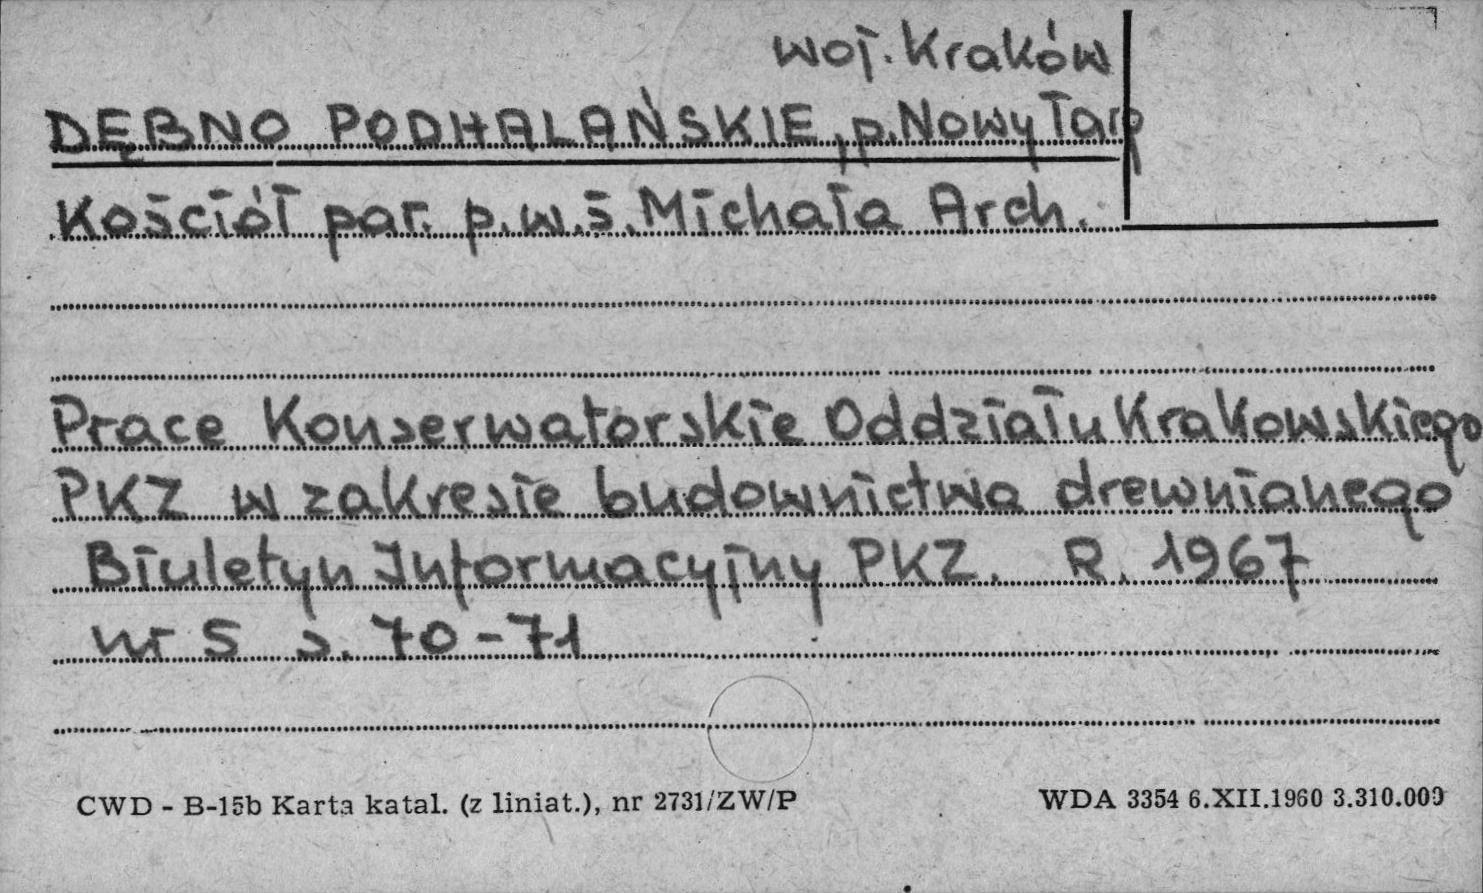 woj. Kraków
DĘBNO PODHALAŃSKIE, p. Nowy Targ
Kościół par. p.w. ś. Michała Arch.
Prace Konserwatorskie Oddziału Krakowskiego
PKZ w zakresie budownictwa drewnianego
Biuletyn Informacyjny PKZ. R. 1967
nr 5 s. 70-71
CWD - B-15b Karta katal. (z liniat.), nr 2731/ZW/P
WDA 3354 6.XII.1960 3.310.000